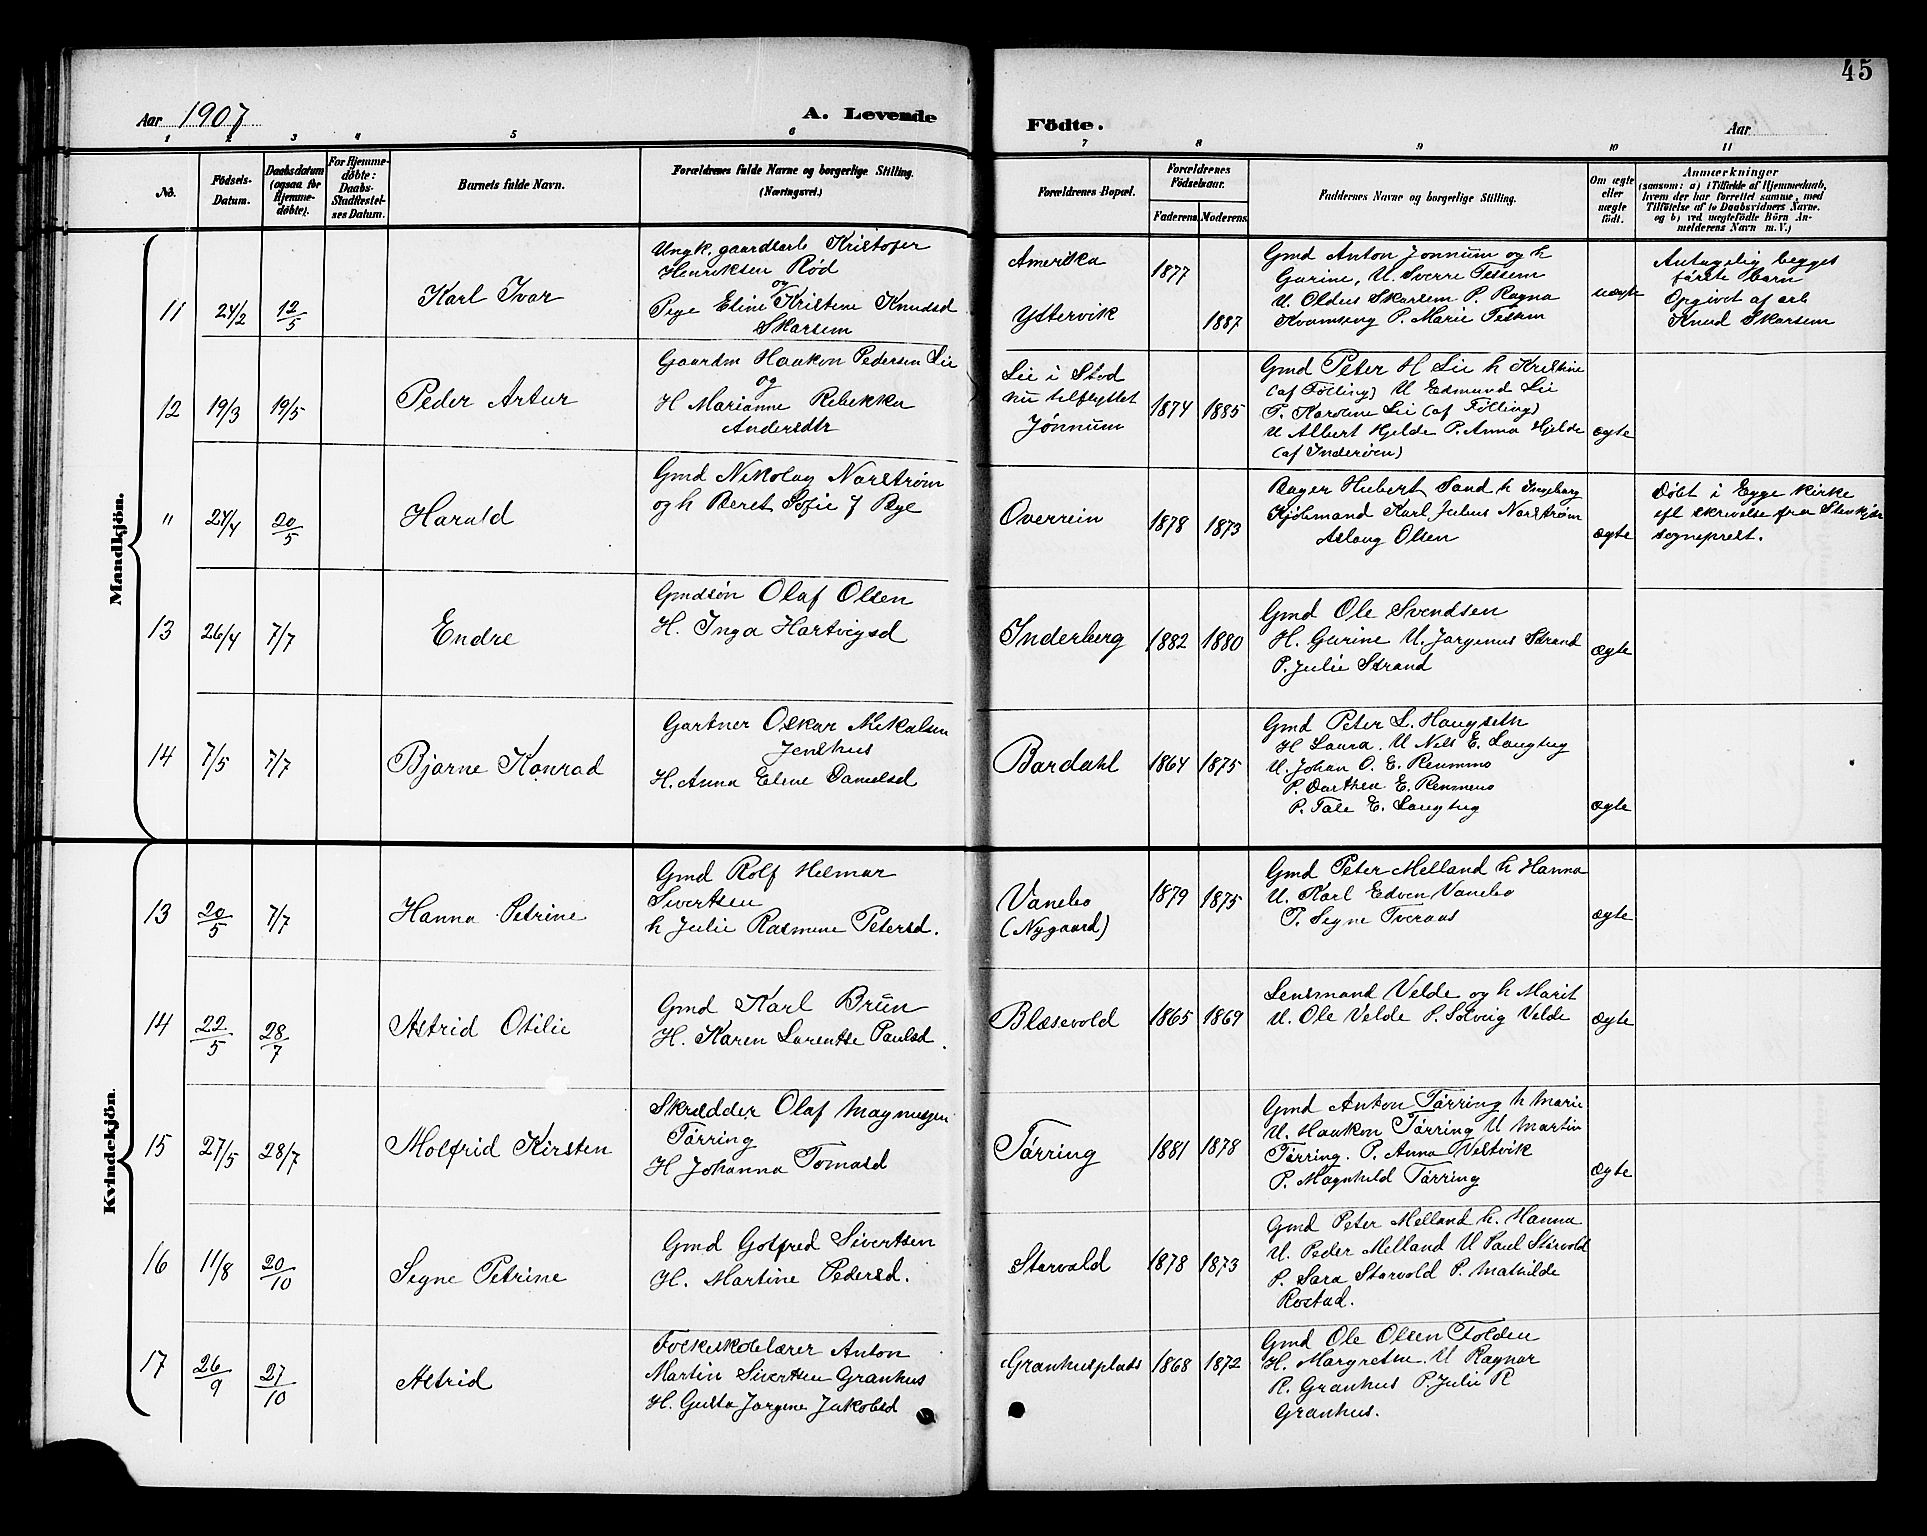 45
Aar 1907
A. Levende
Födte.
Aar
1 2 3 4 5 6 7 8 9 10 11
No.
Födsels-
Datum.
Daabsdatum
(ogsaa for
Hjemme-
döbte).
For Hjemme-
döbte:
Daabs-
Stadfæstel-
ses Datum.
Barnets fulde Navn.
Forældrenes fulde Navne og borgerlige Stilling.
(Næringsvei.)
Forældrenes Bopæl.
Forældrenes
Födselsaar.
Faderens. Moderens.
Faddernes Navne og borgerlige Stilling.
Om ægte
eller
uægte
födt.
Anmærkninger
(saasom: a) i Tilfælde af Hjemmedaab,
hvem der har forrettet samme, med
Tilföielse af to Daabsvidners Navne.
og b) ved uægtefödte Börn An-
melderens Navn m. V.)
Mandkjön.
11
24/2
12/5
Karl Ivar
Ungk. gaardarb Kristofer
Henriksen Rød
og
Pige Eline Kristine Knudsd
Skarsem
Amerika
Ystervik
1877
1887
Gmd Anton Jønnum og h
Gurine, U. Sverre Tessem
U. Oldus Skarsem P. Ragna
Kvamseng P. Marie Tessem
uægte
Antagelig begges
første barn
Opgivet af arb
Knud Skarsem
12
19/3
19/5
Peder Artur
Gaardm Haakon Pedersen Lie
og
H Marianne Rebekka
Andersdtr
Lie i Stod
nu tilflyttet
Jønnum
1874
1885
Gmd Peter H Lie h Kristine
(af Følling) U Edmund Lie
P. Karoline Lie (af Følling)
U Albert Hjelde P. Anna Hjelde
(af Inderøen)
ægte
"
24/4
20/5
Harald
Gmd Nikolay Norstrøm
og h Beret Sofie f Bye
Overrein
1878
1873
Bager Hubert Sand h Ingeborg
Kjøbmand Karl Julius Norstrøm
Aslaug Olsen
ægte
Døbt i Egge kirke
efl skrivelse fra Stenkjær
sogneprest.
13
26/4
7/7
Endre
Gmdsøn Olaf Olsen
H. Inga Hartvigsd
Inderberg
1882
1880
Gmd Ole Svendsen
H. Gurine U. Jørgenus Strand
P. Julie Strand
ægte
14
7/5
7/7
Bjarne Konrad
Gartner Oskar Mikalsen
Jenshus
H. Anna Eline Danielsd
Bardahl
1864
1875
Gmd Peter L. Haugseth
H Laura. U Nels E. Langhug
U. Johan O. E. Remmo
P. Dorthea E. Remmens
P. Tale E. Langhug
ægte
Kvindekjön.
13
20/5
7/7
Hanna Petrine
Gmd Rolf Helmar
Sivertsen
h Julie Rasmine Petersd.
Vanebo
(Nygaard)
1879
1875
Gmd Peter Melland h Hanna
U. Karl Edven Vanebo
P. Signe Tveraas
ægte
14
22/5
28/7
Astrid Otilie
Gmd Karl Brun
H. Karen Larentse Paulsd.
Blæsevold
1865
1869
Lensmand Velde og h Marit
U. Ole Velde P. Solveig Velde
ægte
15
27/5
28/7
Molfrid Kirsten
Skrædder Olaf Magnussen
Tørring
H Johanna Tomasd
Tørring
1881
1878
Gmd Anton Tørring h Marie
U. Haakon Tørring U Martin
Tørring. P. Anna Vestvik
P. Magnhild Tørring
ægte
16
11/8
20/10
Signe Petrine
Gmd Gotfred Sivertsen
H. Martine Pedersd.
Storvold
1878
1873
Gmd Peter Melland h. Hanna
U. Peder Melland U Paul Storvold
P. Sara Storvold P. Mathilde
Rostad.
17
26/9
27/10
Astrid
Folkeskolelærer Anton
Martin Sivertsen Granhus
H. Gusta Jørgine Jakobsd
Granhusplads
1868
1872
Gmd Ole Olsen Folden
H. Margrethe. U Ragnar
R. Granhus P. Julie R
Granhus.